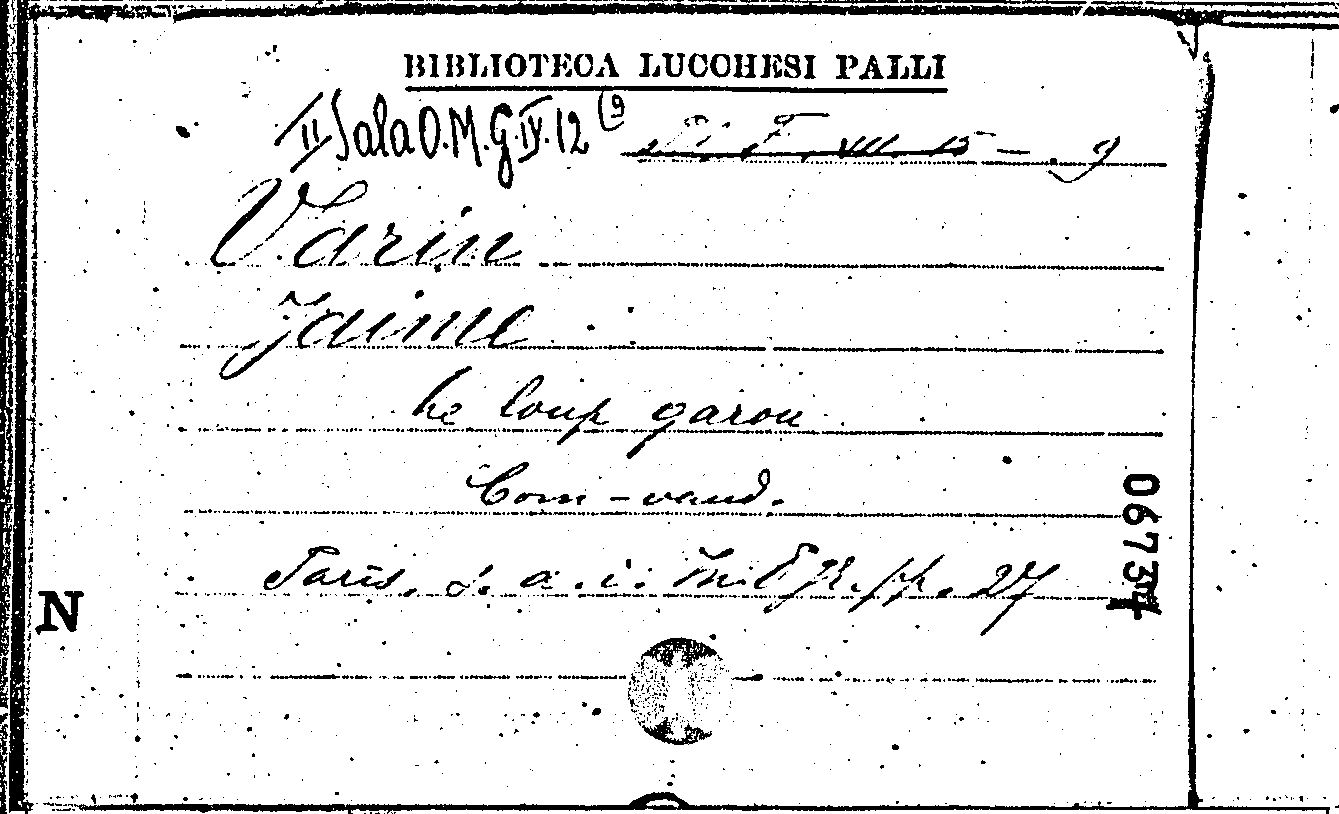 BIBLIOTECA LUCCHESI PALLI
II Sala O.M.G.IX.12 (9 F. VII. 15 - 9
Varin
Jaime
Le loup garou
Com-vaud.
Paris, s. a. i. pp. 27
06734
N